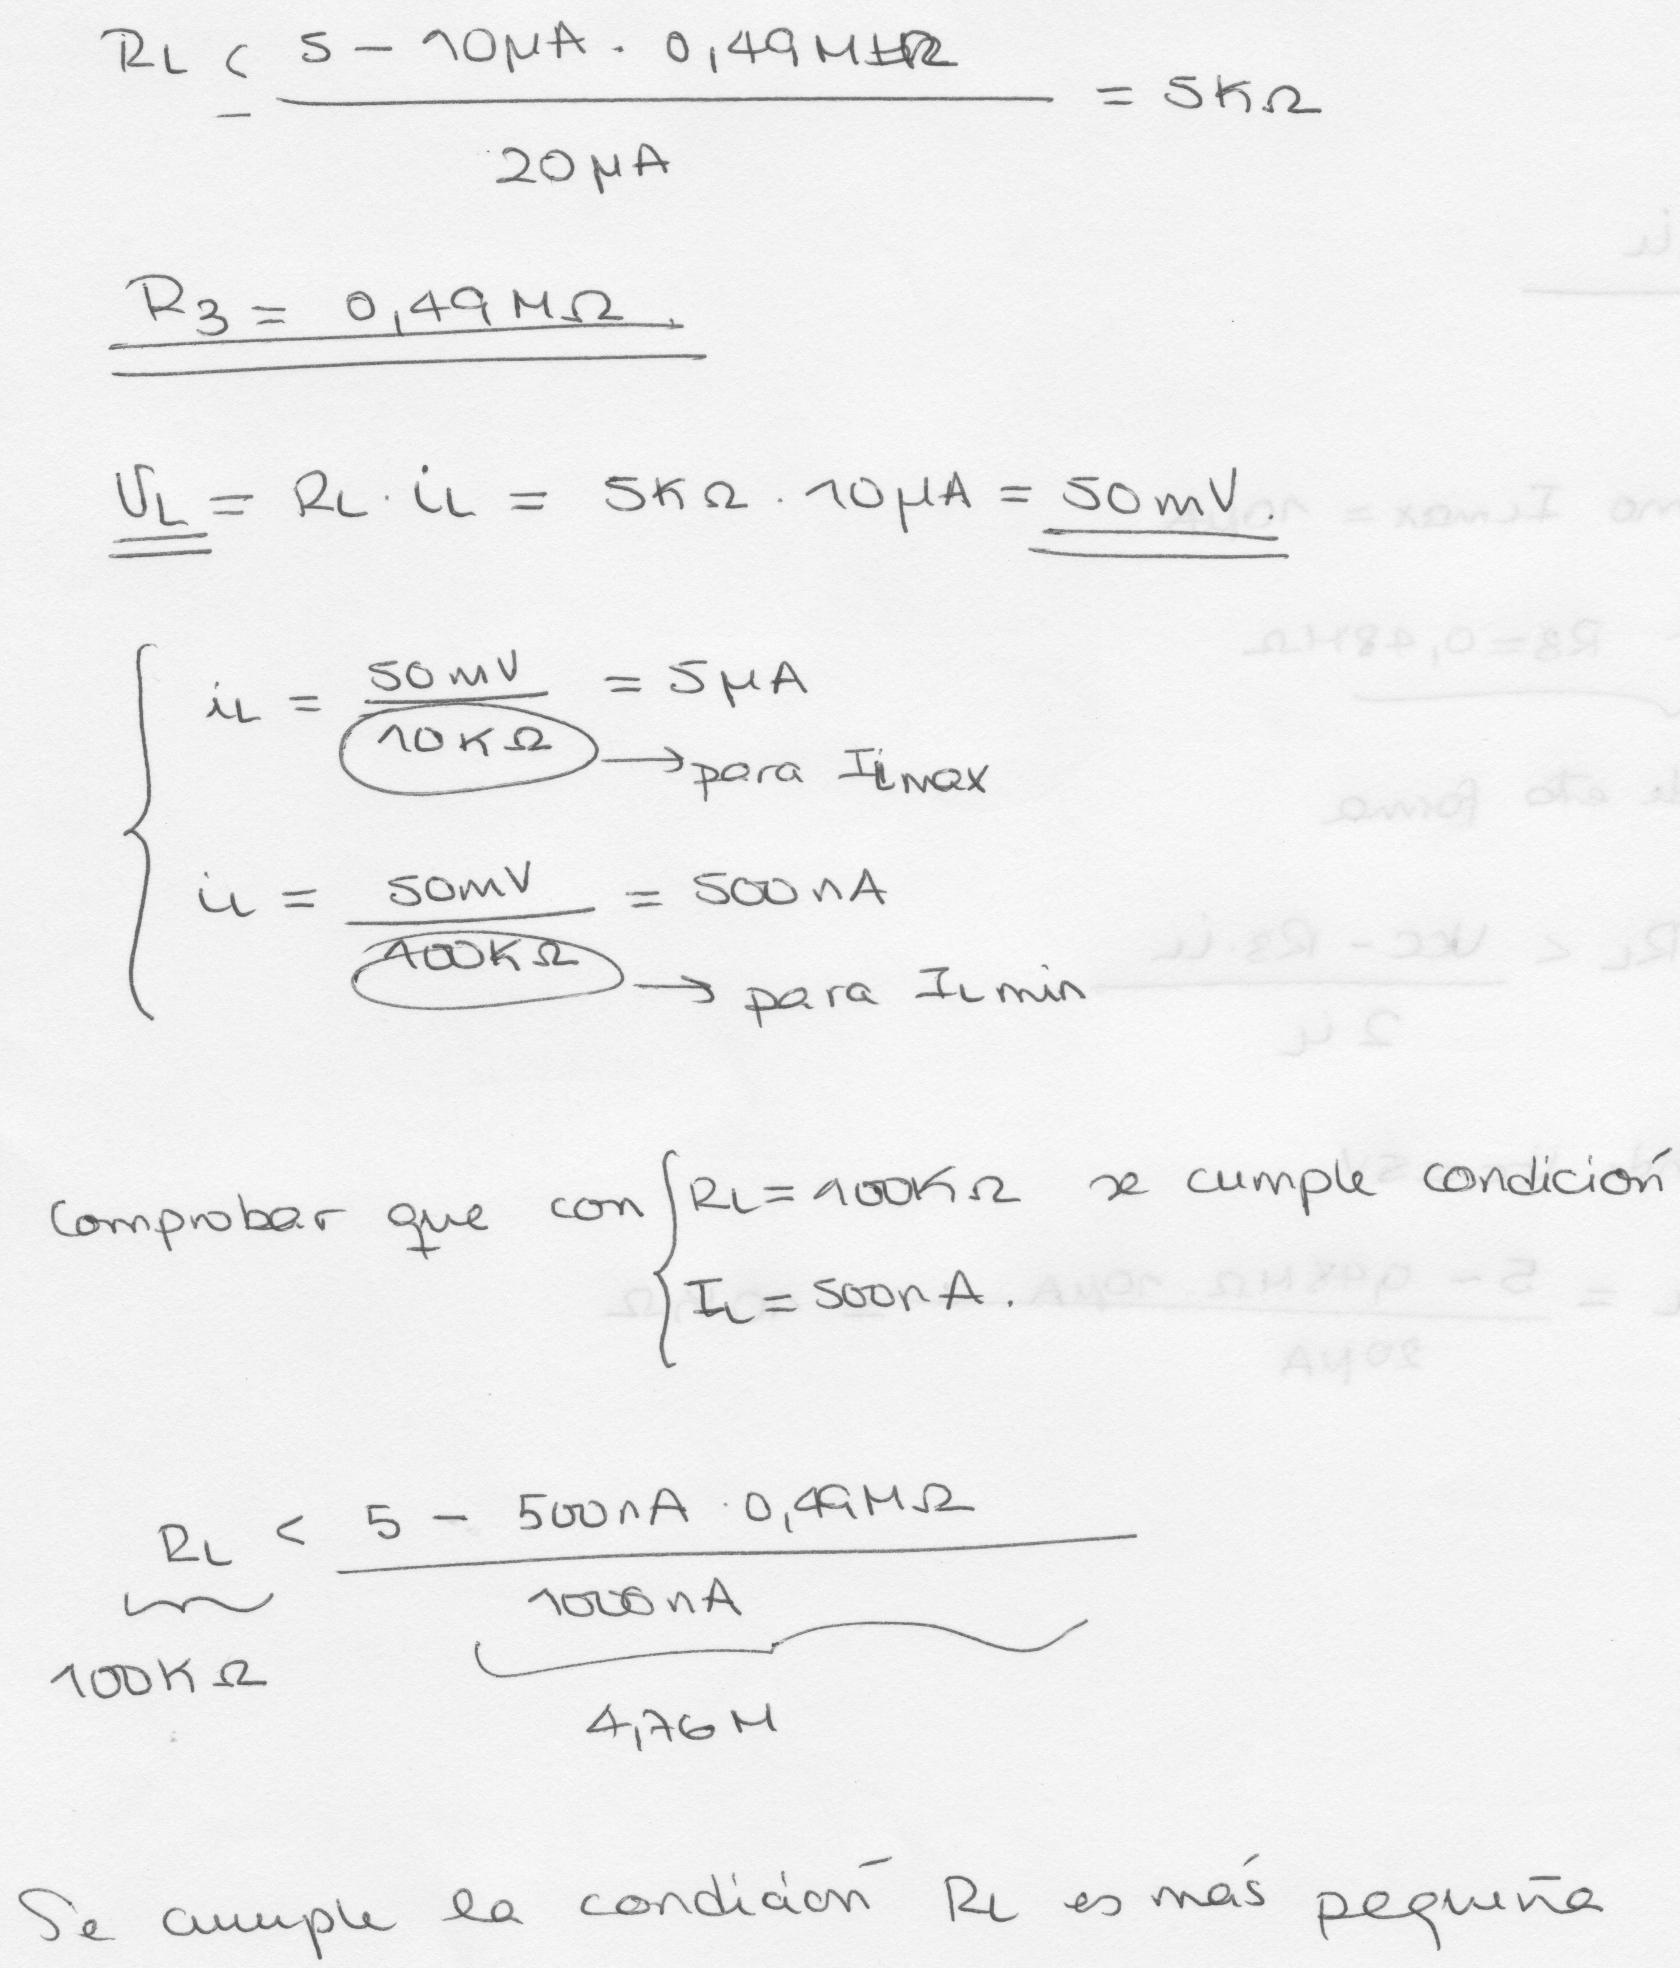 RL ≤ (5 - 10μA · 0,49MΩ) / 20μA = 5KΩ
R3 = 0,49MΩ.
UL = RL · iL = 5KΩ · 10μA = 50mV.
iL = 50mV / 10KΩ = 5μA
→ para ILmax
iL = 50mV / 100KΩ = 500nA
→ para ILmin
Comprobar que con { RL = 100KΩ se cumple condición
IL = 500nA.
RL < (5 - 500nA · 0,49MΩ) / 1000nA
100KΩ
4,76M
Se cumple la condición RL es más pequeña